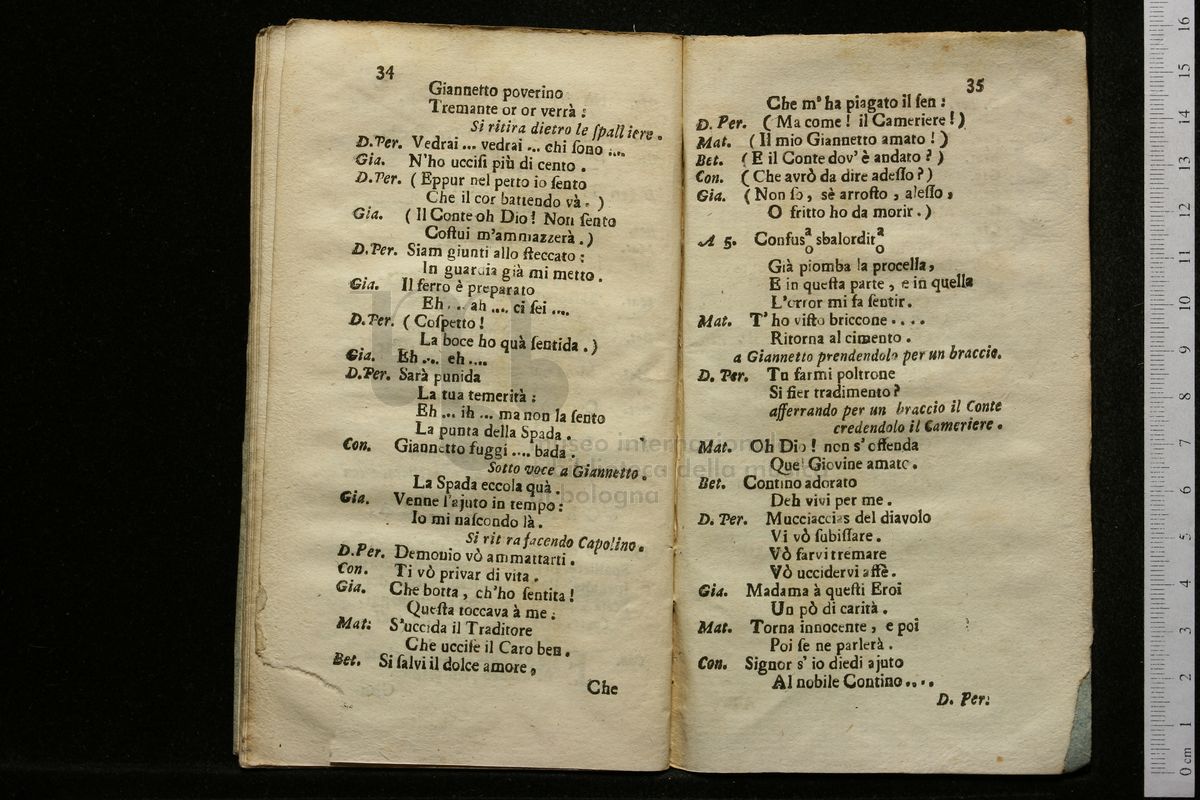 34
Giannetto poverino
Tremante or or verrà :
Si ritira dietro le ſpalliere .
D.Per. Vedrai ... vedrai ... chi ſono ....
Gia. N'ho ucciſi più di cento .
D.Per. ( Eppur nel petto io ſento
Che il cor battendo và . )
Gia. ( Il Conte oh Dio ! Non ſento
Coſtui m'ammazzerà . )
D.Per. Siam giunti allo ſteccato :
In guardia già mi metto .
Gia. Il ferro è preparato
Eh ... ah .... ci ſei ....
D.Per. ( Coſpetto !
La boce ho quà ſentida . )
Gia. Eh .... eh ....
D.Per. Sarà punida
La tua temerità :
Eh ... ih ... ma non la ſento
La punta della Spada .
Con. Giannetto fuggi .... bada .
Sotto voce a Giannetto .
La Spada eccola quà .
Gia. Venne l'ajuto in tempo :
Io mi naſcondo là .
Si rit ra facendo Capolino .
D.Per. Demonio vò ammattarti .
Con. Ti vò privar di vita .
Gia. Che botta , ch'ho ſentita !
Queſta toccava à me :
Mat: S'uccida il Traditore
Che uccife il Caro ben .
Bet. Si ſalvi il dolce amore ,
Che
35
Che m'ha piagato il ſen :
D. Per. ( Ma come ! il Cameriere ! )
Mat. ( Il mio Giannetto amato ! )
Bet. ( E il Conte dov' è andato ? )
Con. ( Che avrò da dire adeſſo ? )
Gia. ( Non ſo , sè arroſto , aleſſo ,
O fritto ho da morir . )
A 5. Confus a/o sbalordit a/o
Già piomba la procella ,
E in queſta parte , e in quella
L'orror mi fa ſentir .
Mat. T' ho viſto briccone . . . .
Ritorna al cimento .
a Giannetto prendendolo per un braccio.
D. Per. Tu farmi poltrone
Si fier tradimento ?
afferrando per un braccio il Conte
credendolo il Cameriere .
Mat. Oh Dio ! non s' offenda
Quel Giovine amato .
Bet. Contino adorato
Deh vivi per me .
D. Per. Mucciaccias del diavolo
Vi vò ſubiſſare .
Vò farvi tremare
Vò uccidervi affè .
Gia. Madama à queſti Eroi
Un pò di carità .
Mat. Torna innocente , e poi
Poi ſe ne parlerà .
Con. Signor s' io diedi ajuto
Al nobile Contino . . . .
D. Per:
museo internazionale
della musica
bologna
0 cm 1 2 3 4 5 6 7 8 9 10 11 12 13 14 15 16